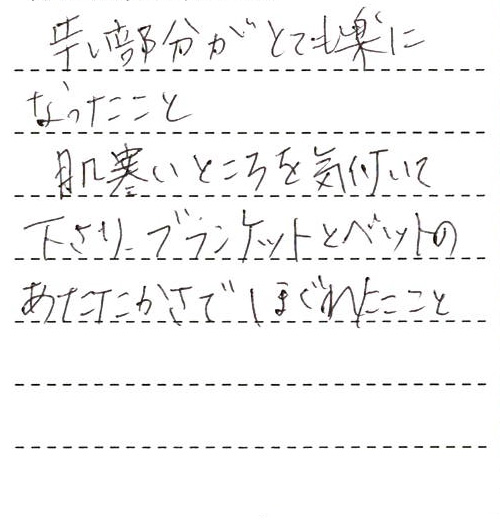 辛い部分がとても楽に
なったこと
肌寒いところを気付いて
下さり、ブランケットとベットの
あたたかさでほぐれたこと